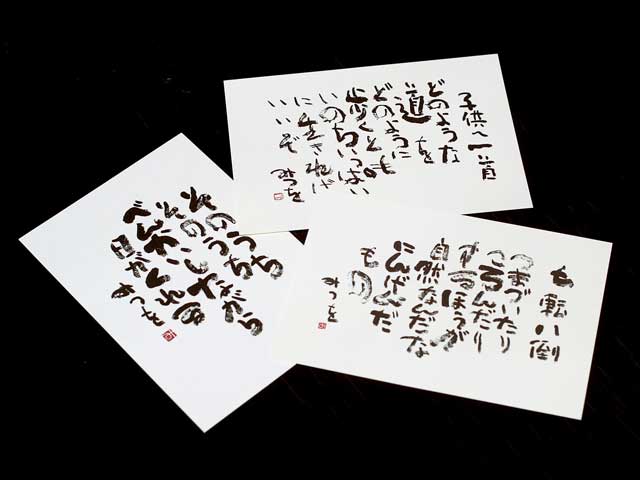 子供へ一首
どのような
道を
どのように
歩くとも
いのちいっぱい
に生きれば
いいぞ
みつを
そのうち
そのうち
べんかいしながら
日がくれる
みつを
七転八倒
つまづいたり
ころんだり
するほうが
自然なんだな
にんげんだ
もの
みつを